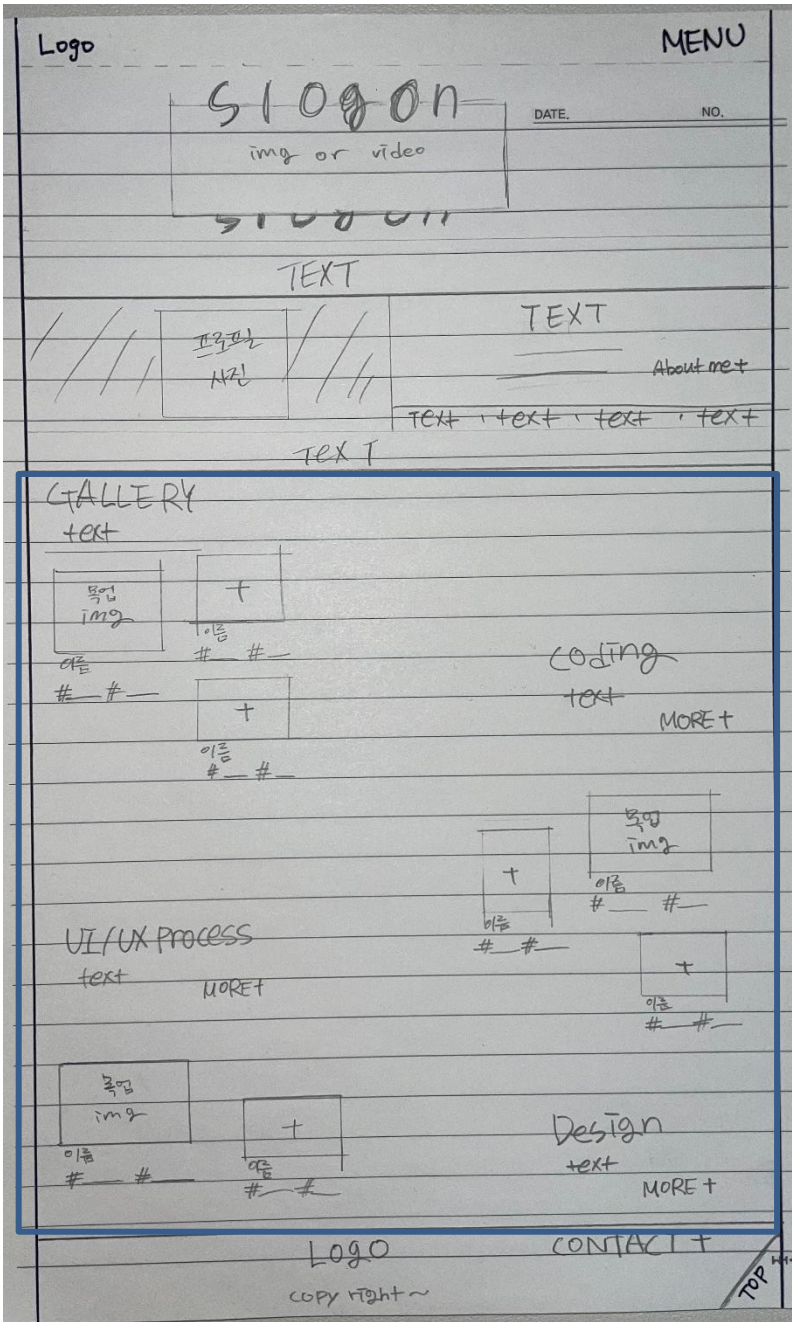 Logo
MENU
Slogan
DATE.
NO.
img or video
TEXT
프로필
사진
TEXT
About me +
Text · text · text · text
TEXT
GALLERY
text
목업
img
이름
#__ #__
+
이름
#__ #__
+
이름
#__ #__
Coding
text
MORE +
목업
img
이름
#__ #__
+
이름
#__ #__
+
이름
#__ #__
UI/UX process
text
MORE +
목업
img
이름
#__ #__
+
이름
#__ #__
Design
text
MORE +
LOGO
CONTACT +
copy right ~
TOP